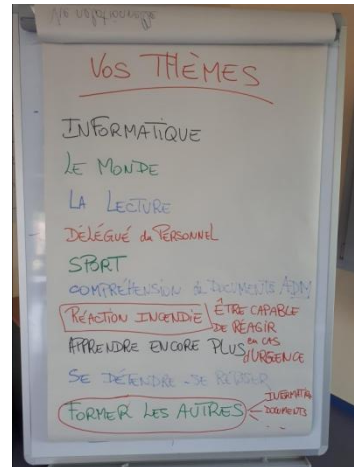 Vos THÈMES
INFORMATIQUE
LE MONDE
LA LECTURE
DÉLÉGUÉ du PERSONNEL
SPORT
COMPRÉHENSION de DOCUMENTS ADM
RÉACTION INCENDIE
ÊTRE CAPABLE
DE RÉAGIR
en CAS
d'URGENCE
APPRENDRE ENCORE PLUS
SE DÉTENDRE - SE
FORMER LES AUTRES
DOCUMENTS